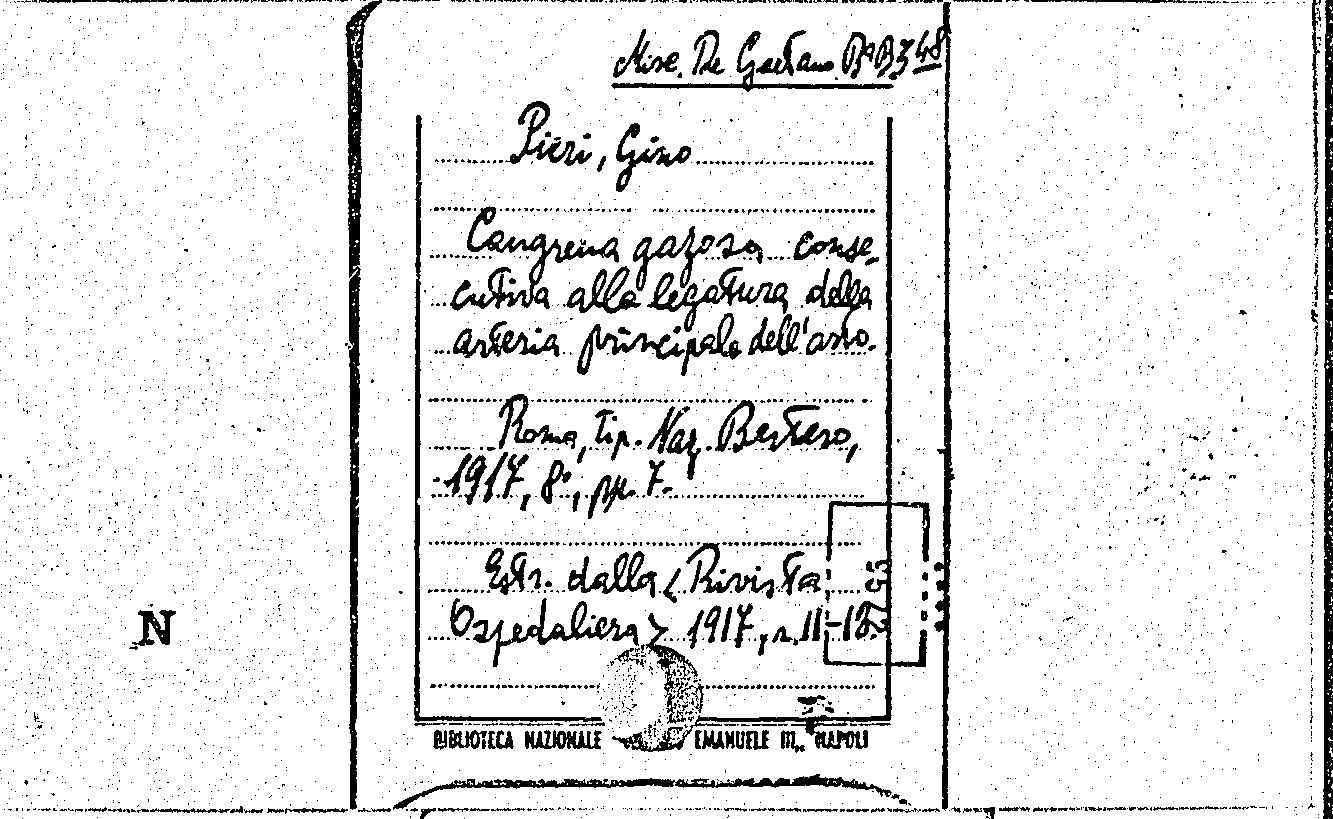 Misc. De Gaetano B^a B3 48
Pieri, Gino
Cangrena gazosa conse-
cutiva alla legatura della
arteria principale dell'arto.
Roma, tip. Naz. Bertero,
1917, 8°, pp. 7.
Estr. dalla < Rivista
Ospedaliera > 1917, n. 11-12.
N
BIBLIOTECA NAZIONALE EMANUELE III, NAPOLI